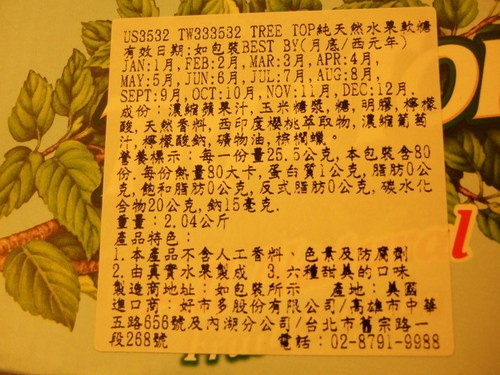 US3532 TW333532 TREE TOP純天然水果軟糖
有效日期:如包裝BEST BY(月底/西元年)
JAN:1月,FEB:2月,MAR:3月,APR:4月,
MAY:5月,JUN:6月,JUL:7月,AUG:8月,
SEPT:9月,OCT:10月,NOV:11月,DEC:12月.
成份:濃縮蘋果汁,玉米糖漿,糖,明膠,檸檬
酸,天然香料,西印度櫻桃萃取物,濃縮葡萄
汁,檸檬酸鈉,礦物油,棕櫚蠟。
營養標示:每一份量25.5公克,本包裝含80
份.每份熱量80大卡,蛋白質1公克,脂肪0公
克,飽和脂肪0公克,反式脂肪0公克,碳水化
合物20公克,鈉15毫克.
重量:2.04公斤
產品特色:
1.本產品不含人工香料、色素及防腐劑
2.由真實水果製成 3.六種甜美的口味
製造商地址:如包裝所示 產地:美國
進口商:好市多股份有限公司/高雄市中華
五路656號及內湖分公司/台北市舊宗路一
段268號 電話:02-8791-9988